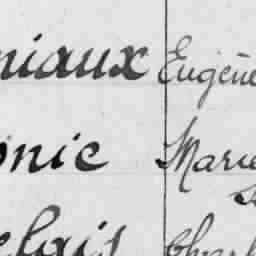 niaux Eugène
onic Marie
elais Charl